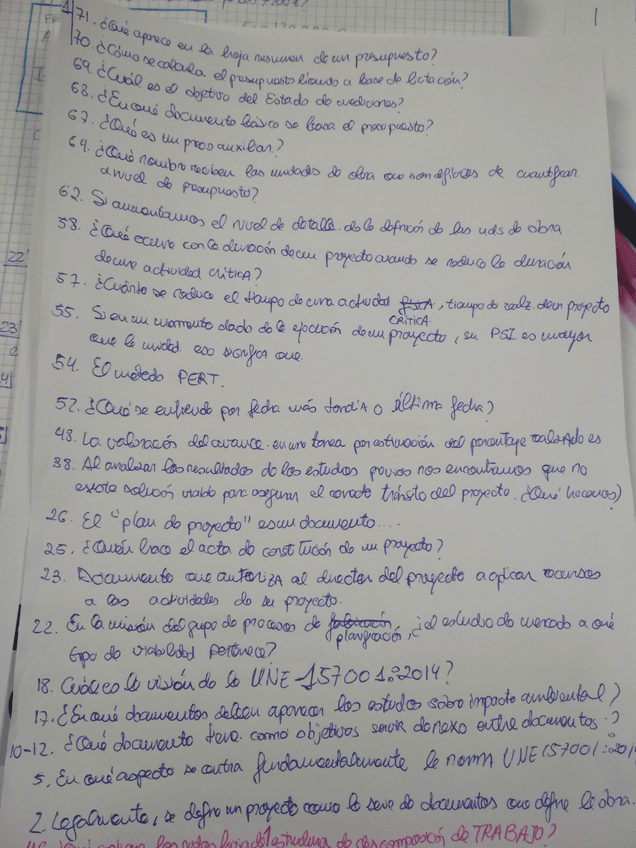 71. ¿Qué aparece en la hoja resumen de un presupuesto?
70. ¿Cómo se calcula el presupuesto líquido a base de licitación?
69. ¿Cuál es el objetivo del Estado de mediciones?
68. ¿En qué documento básico se basa el presupuesto?
67. ¿Qué es un precio auxiliar?
64. ¿Qué nombre reciben las unidades de obra que son difíciles de cuantificar
a nivel de presupuesto?
62. Si aumentamos el nivel de detalle de la definición de las uds de obra
58. ¿Qué ocurre con la duración de un proyecto cuando se reduce la duración
de una actividad crítica?
57. ¿Cuánto se reduce el tiempo de una actividad CRÍTICA, tiempo de realiz. de un proyecto
55. Si en un momento dado de la ejecución de un proyecto, su PSI es mayor
que la unidad eso significa que.
54. El método PERT.
52. ¿Qué se entiende por fecha más tardía o última fecha?
43. La valoración del avance en una tarea por estimación del porcentaje realizado es
38. Al analizar los resultados de los estudios previos nos encontramos que no
existe solución viable para asegurar el correcto tránsito del proyecto. ¿Qué hacemos)
26. El "plan de proyecto" es un documento....
25. ¿Quién hace el acta de constitución de un proyecto?
23. Documento que autoriza al director del proyecto a aplicar recursos
a las actividades de su proyecto.
22. En la misión del grupo de procesos de planificación, ¿el estudio de mercado a qué
tipo de viabilidad pertenece?
18. Cuál es la visión de la UNE-157001:2014?
17. ¿En qué documentos deben aparecer los estudios sobre impacto ambiental?
10-12. ¿Qué documento tiene como objetivos servir de nexo entre documentos?
5. En qué aspecto se centra fundamentalmente la norma UNE 157001:201
2. Legalmente, se define un proyecto como la serie de documentos que define la obra.
estructura de descomposición de TRABAJO?